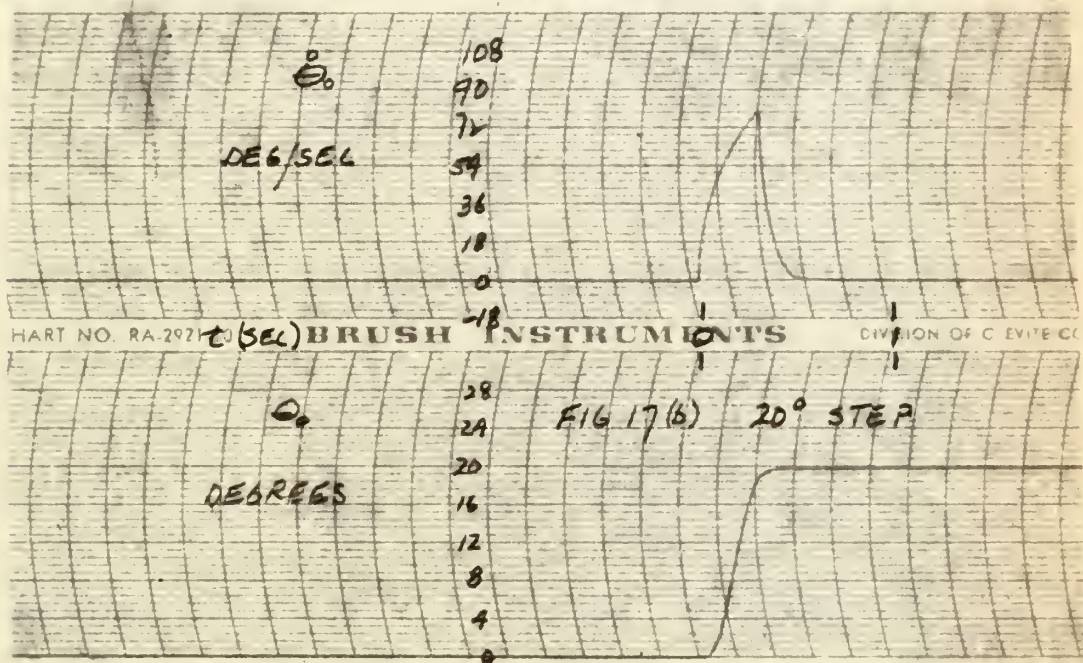 θ̊₀
DEG/SEC
108
90
72
54
36
18
0
-18
HART NO. RA-2921
t (SEC) BRUSH INSTRUMENTS DIVISION OF C EVITE CO
0 1
θ₀
DEGREES
28
24
20
16
12
8
4
0
FIG 17(b) 20° STEP